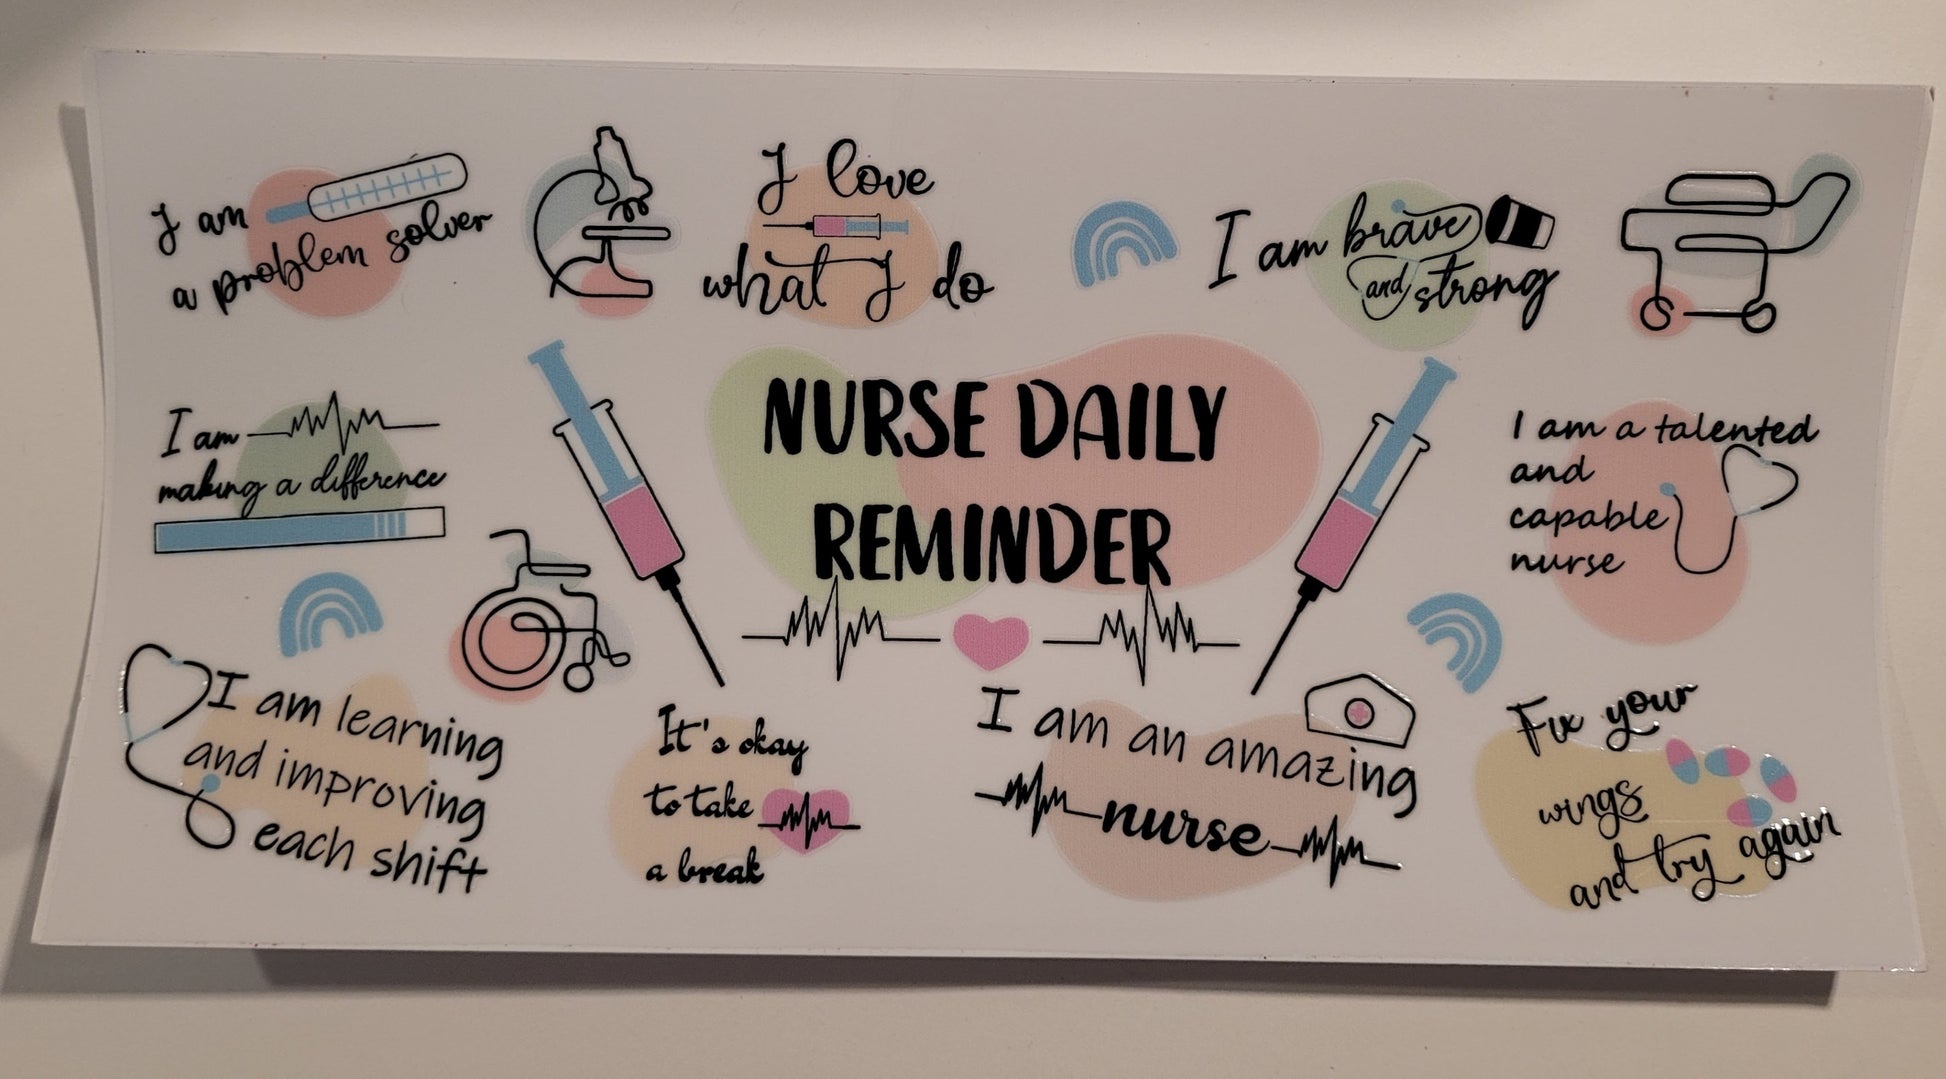 I am
a problem solver
I love
what I do
I am brave
and strong
NURSE DAILY
REMINDER
I am
making a difference
I am a talented
and
capable
nurse
I am learning
and improving
each shift
It's okay
to take
a break
I am an amazing
nurse
Fix your
wings
and try again